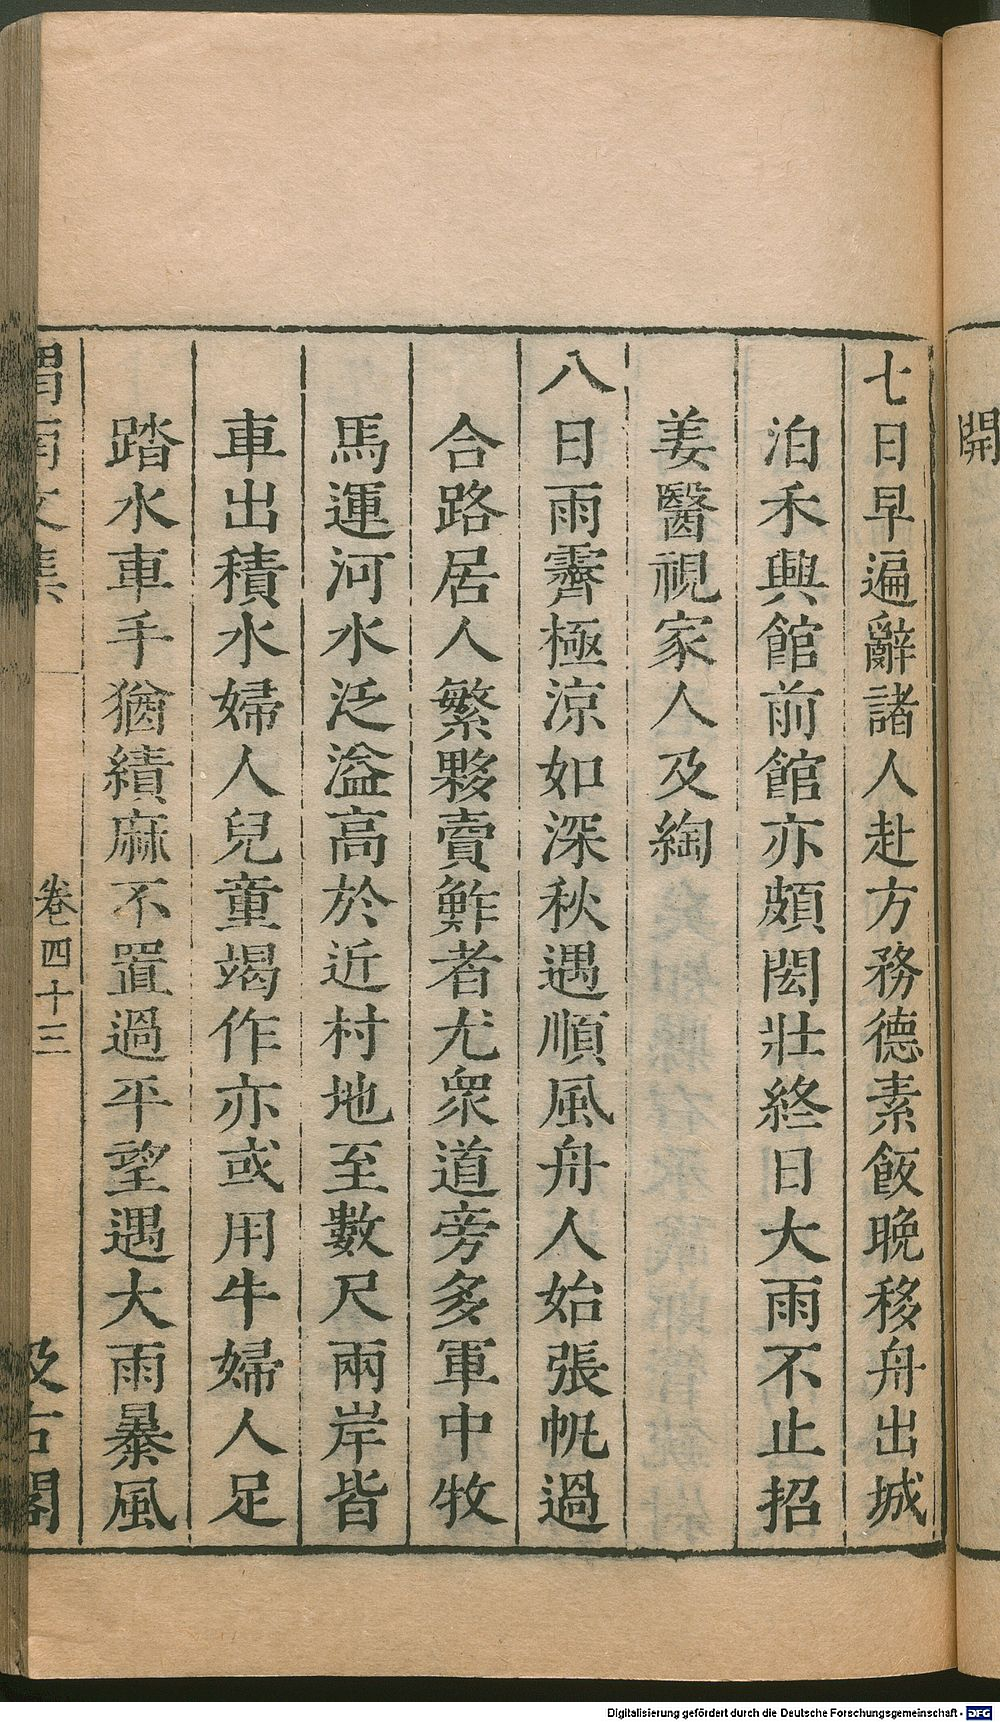 開
七日早遍辭諸人赴方務德素飯晚移舟出城
泊禾興館前館亦頗閎壯終日大雨不止招
姜醫視家人及綯
八日雨霽極涼如深秋遇順風舟人始張帆過
合路居人繁夥賣鮓者尤衆道旁多軍中牧
馬運河水泛溢高於近村地至數尺兩岸皆
車出積水婦人兒童竭作亦或用牛婦人足
踏水車手猶績麻不置過平望遇大雨暴風
渭南文集 卷四十三 汲古閣
Digitalisierung gefördert durch die Deutsche Forschungsgemeinschaft - DFG